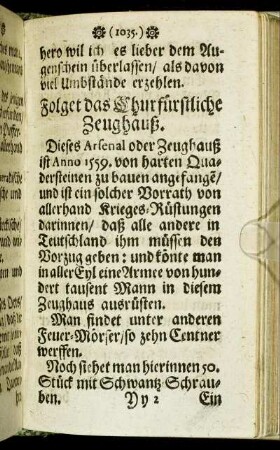 (1035.)
hero wil ich es lieber dem Au-
genschein überlassen / als davon
viel Umbstände erzehlen.
Folget das Churfürstliche
Zeughauß.
Dieses Arsenal oder Zeughauß
ist Anno 1559. von harten Qua-
dersteinen zu bauen angefangē /
und ist ein solcher Vorrath von
allerhand Krieges-Rüstungen
darinnen / daß alle andere in
Teutschland ihm müssen den
Vorzug geben: und könte man
in aller Eyl eine Armee von hun-
dert tausent Mann in diesem
Zeughaus ausrüsten.
Man findet unter anderen
Feuer-Mörser / so zehn Centner
werffen.
Noch siehet man hierinnen 50.
Stück mit Schwantz-Schrau-
ben. Yy 2 Ein